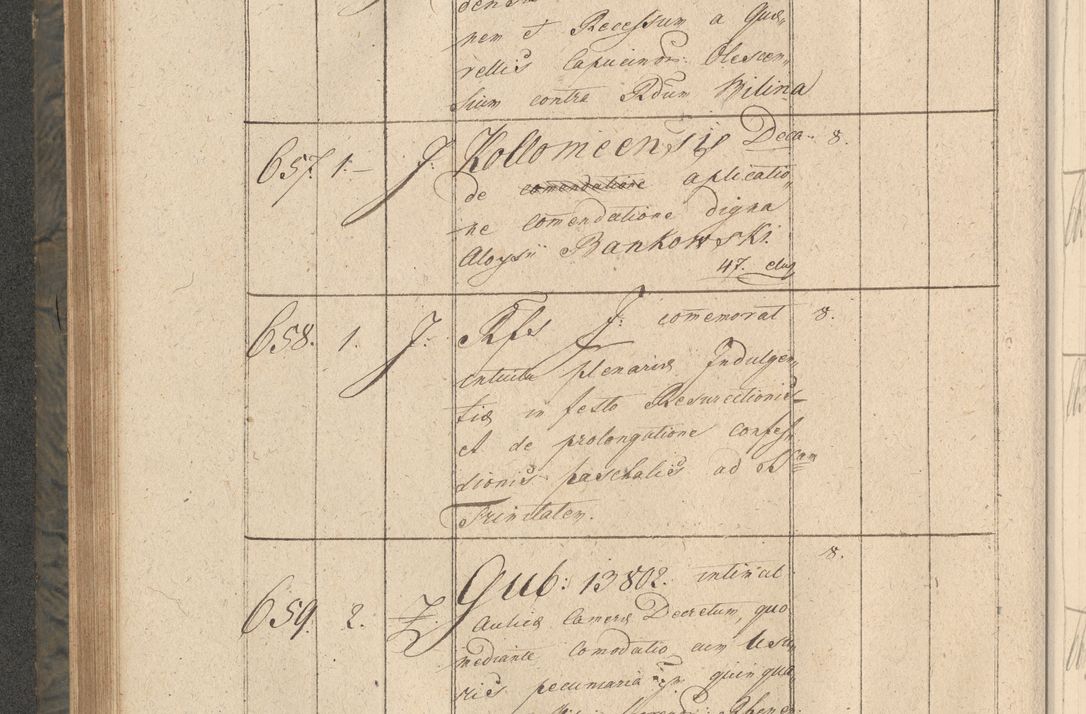 nem et Recessum a Que-
rellis Capucinor: Olescen-
sium contra Rdum Bilina
657. 1. – J: Kollomeensis Deca- 8.
de comendatione aplicatio-
ne comendatione digna
Aloysii Bankowski.
47. elus
658. 1. J: Rfs J: comemorat 8.
intuitu plenariæ Indulgen-
tiæ in festo Resurectionis
et de prolongatione confes-
sionis paschalis ad SSam
Trinitatem.
659. 2. Z. Gub: 13802. intimat 8.
Aulicæ Cameræ Decretum, quo
mediante Comodatio cum Usu-
riis pecuniaria in quinqua